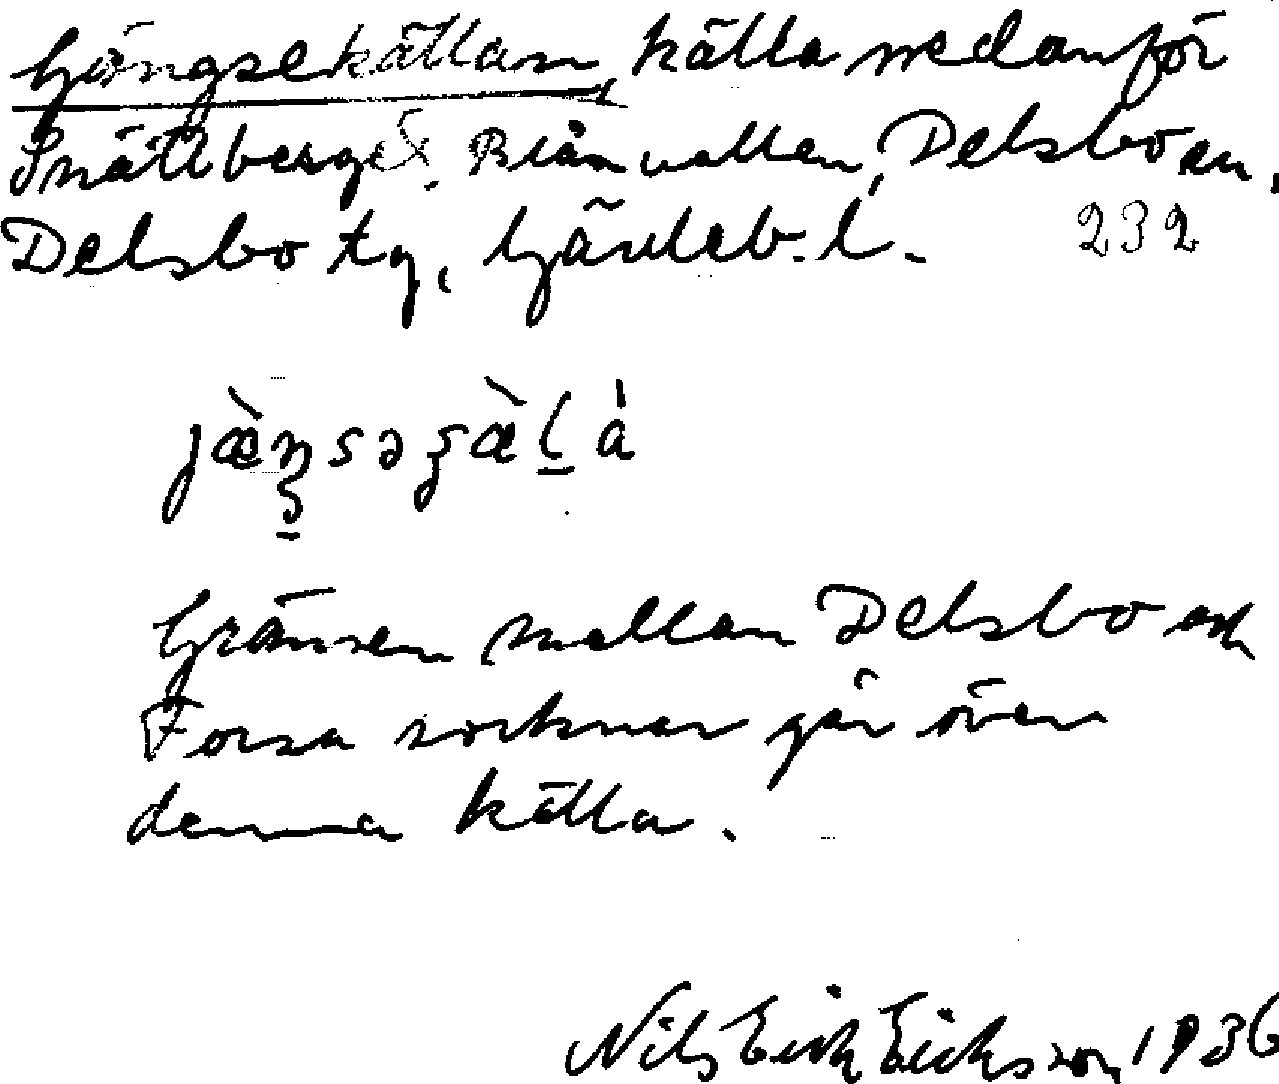 Gängsekällan, källa nedanför
Snällberget. Blånvallen, Delsbo sn,
Delsbo tg, Gävleb. l. 232
jæ̀ŋsəʒæ̀ḷá
Gränsen mellan Delsbo och
Forsa socknar går över
denna källa.
Nils Erik Eriksson, 1936